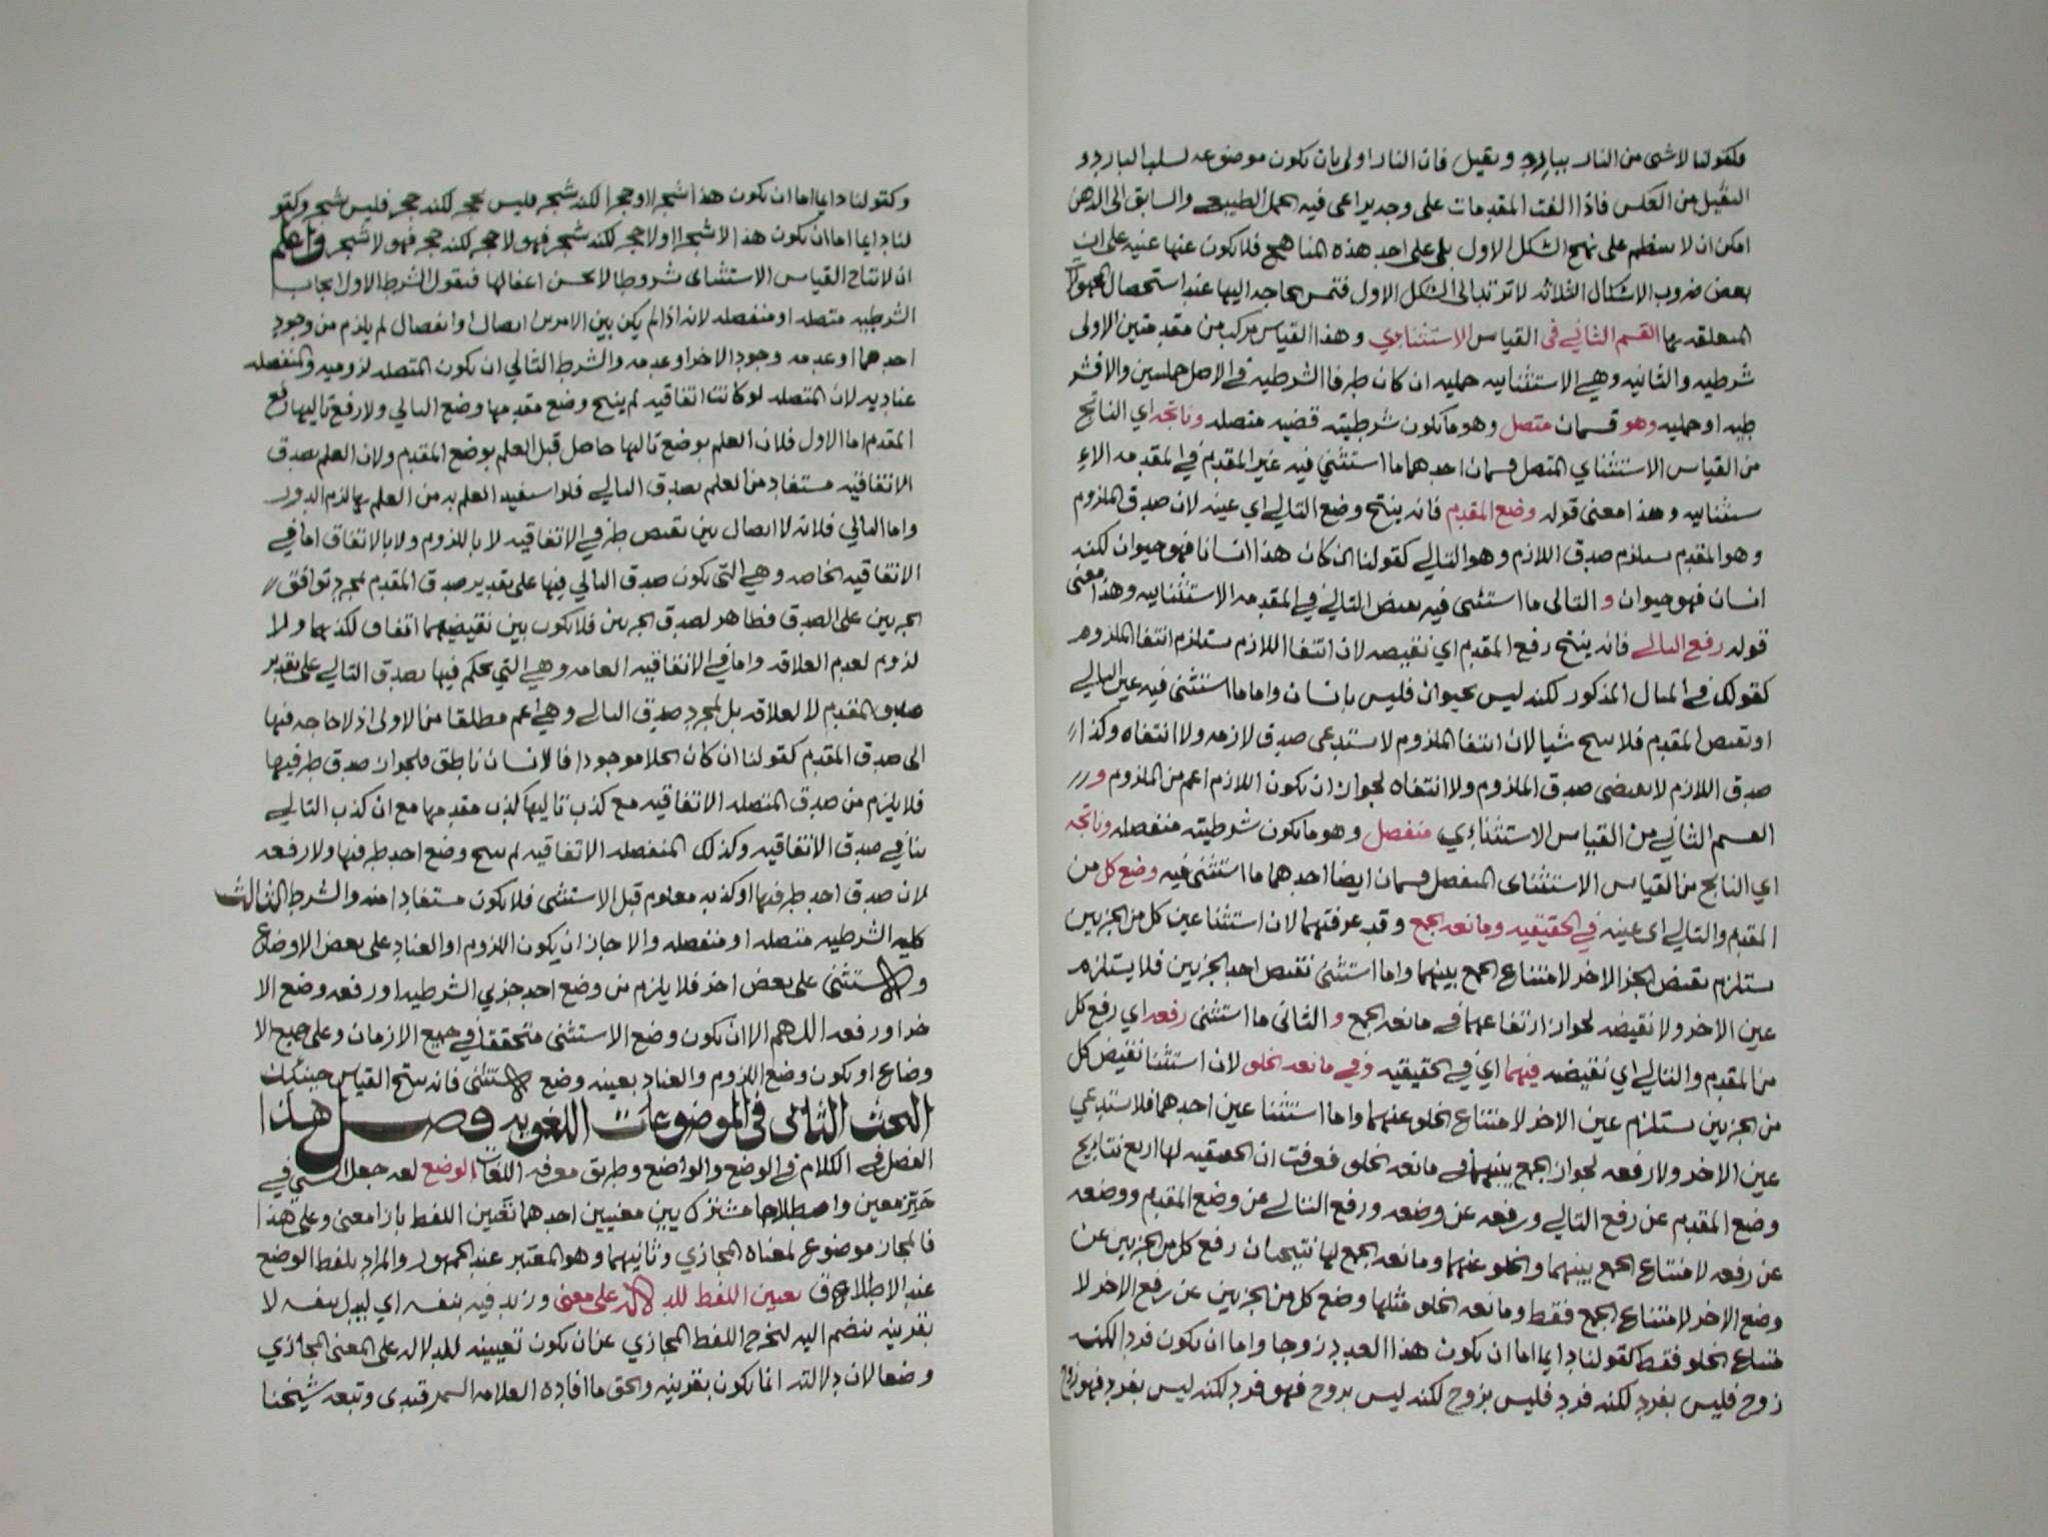 وكقولنا لا شى من النار ببارد وثقيل فان النار اولى بان تكون موضوعه لسلب البارد و
الثقيل من العكس فاذا الفت المقدمات على وجه يراعى فيه الحمل الطبيعي والسابق الى الذهن
امكن ان لا ينتظم على نهج الشكل الاول بل على احد هذه المناهج فلا يكون عنها غنيه على ان
بعض ضروب الاشكال الثلاثه لا ترتد الى الشكل الاول فتمس الحاجه اليها عند استحصال المجهولات
المتعلقه بها القسم الثاني في القياس الاستثناوي وهذا القياس مركب من مقدمتين الاولى
شرطيه والثانيه وهي الاستثنائيه حمليه ان كان طرفا الشرطيه في الاصل حمليتين والا فشر
طيه او حمليه وهو قسمان متصل وهو ما تكون شرطيته قضيه متصله وناتجه اي الناتج
من القياس الاستثناي المتصل قسمان احدهما ما استثني فيه عين المقدم في المقدمه الا
ستثنائيه وهذا معنى قوله وضع المقدم فانه ينتج وضع التالي اي عينه لان صدق الملزوم
وهو المقدم يستلزم صدق اللازم وهو التالي كقولنا ان كان هذا انسانا فهو حيوان لكنه
انسان فهو حيوان و الثانى ما استثنى فيه نقيض التالي في المقدمه الاستثنائيه وهذا معنى
قوله رفع التالي فانه ينتج رفع المقدم اي نقيضه لان انتفا اللازم يستلزم انتفا الملزوم
كقولك في المثال المذكور لكنه ليس بحيوان فليس بانسان واما ما استثنى فيه عين التالي
او نقيض المقدم فلا ينتج شيا لان انتفا الملزوم لا يستدعى صدق لازمه ولا انتفاه وكذا
صدق اللازم لا يقتضى صدق الملزوم ولا انتفاه لجواز ان يكون اللازم اعم من الملزوم و
القسم الثاني من القياس الاستثناءي منفصل وهو ما يكون شرطيته منفصله وناتجه
اي الناتج من القياس الاستثناى المنفصل قسمان ايضا احدهما ما استثنى فيه وضع كل من
المقدم والتالي اى عينه في الحقيقيه ومانعه الجمع وقد عرفتهما لان استثنا عين كل من الجزيين
يستلزم نقيض الجز الاخر لامتناع الجمع بينهما واما استثنى نقيض احد الجزيين فلا يستلزم
عين الاخر ولا نقيضه لجواز ارتفاعهما في مانعه الجمع و الثانى ما استثنى رفعه اي رفع كل
من المقدم والتالي اي نقيضه فيهما اي في الحقيقيه وفي مانعه الخلو لان استثنا نقيض كل
من الجزيين يستلزم عين الاخر لامتناع الخلو عنهما واما استثنا عين احدهما فلا يستدعي
عين الاخر ولا رفعه لجواز الجمع بينهما في مانعه الخلو فعرفت ان الحقيقيه لها اربع نتايج
وضع المقدم عن رفع التالي ورفعه عن وضعه ورفع التالي عن وضع المقدم ووضعه
عن رفعه لامتناع الجمع بينهما والخلو عنهما ومانعه الجمع لها نتيجتان رفع كل من الجزيين عن
وضع الاخر لامتناع الجمع فقط ومانعه الخلو مثلها وضع كل من الجزيين عن رفع الاخر لا
متناع الخلو فقط كقولنا دايما اما ان يكون هذا العدد زوجا واما ان يكون فردا لكنه
زوج فليس بفرد لكنه فرد فليس بزوج لكنه ليس بزوج فهو فرد لكنه ليس بفرد فهو زوج
وكقولنا دايما اما ان يكون هذا شجرا او حجرا لكنه شجر فليس بحجر لكنه حجر فليس شجر وكقو
لنا دايما اما ان يكون هذا لا شجرا او لا حجر لكنه شجر فهو لا حجر لكنه حجر فهو لا شجر واعلم
ان لانتاج القياس الاستثناى شروطا لا يحسن اغفالها فنقول الشرط الاول ايجاب
الشرطيه متصله او منفصله لانه اذا لم يكن بين الامرين اتصال او انفصال لم يلزم من وجود
احدهما او عدمه وجود الاخر او عدمه والشرط الثاني ان تكون المتصله لزوميه والمنفصله
عناديه لان المتصله لو كانت اتفاقيه لم ينتج وضع مقدمها وضع التالي ولا رفع تاليها رفع
المقدم اما الاول فلان العلم بوضع تاليها حاصل قبل العلم بوضع المقدم ولان العلم بصدق
الاتفاقيه مستفاد من العلم بصدق التالي فلو استفيد العلم به من العلم بها لزم الدور
واما الثاني فلانه لا اتصال بين نقيض طرفي الاتفاقيه لا باللزوم ولا بالاتفاق اما في
الاتفاقيه الخاصه وهي التى يكون صدق التالي فيها على تقدير صدق المقدم لمجرد توافق
الجزيين على الصدق فظاهر لصدق الجزيين فلا يكون بين نقيضيهما اتفاق لكذبهما ولا
لزوم لعدم العلاقه واما في الاتفاقيه العامه وهي التي يحكم فيها بصدق التالي على تقدير
صدق المقدم لا لعلاقه بل لمجرد صدق التالي وهي اعم مطلقا من الاولى اذ لا حاجه فيها
الى صدق المقدم كقولنا ان كان الخلا موجودا فالانسان ناطق فلجواز صدق طرفيها
فلا يلزم من صدق المتصله الاتفاقيه مع كذب تاليها كذب مقدمها مع ان كذب التالي
ينافي صدق الاتفاقيه وكذلك المنفصله الاتفاقيه لم ينتج وضع احد طرفيها ولا رفعه
لان صدق احد طرفيها او كذبه معلوم قبل الاستثنى فلا يكون مستفادا منه والشرط الثالث
كليه الشرطيه متصله او منفصله والا جاز ان يكون اللزوم او العناد على بعض الاوضاع
والاستثنى على بعض اخر فلا يلزم من وضع احد جزيي الشرطيه او رفعه وضع الا
خر او رفعه اللهم الا ان يكون وضع الاستثنى متحققا في جميع الازمان وعلى جميع الا
وضاع او يكون وضع اللزوم والعناد بعينه وضع الاستثنى فانه ينتج القياس حينئذ
البحث الثانى فى الموضوعات اللغويه فصل هذا
الفصل في الكلام في الوضع والواضع وطريق معرفه اللغات الوضع لغه جعل الشي في
حيز معين واصطلاحا مشترك بين معنيين احدهما تعين اللفظ بازا معنى وعلى هذا
فالمجاز موضوع لمعناه المجازي وثانيهما وهو المعتبر عند الجمهور والمراد بلفظ الوضع
عند الاطلاق تعيين اللفظ للدلاله على معنى وزيد فيه بنفسه اي ليدل بنفسه لا
بقرينه تنضم اليه ليخرج اللفظ المجازي عن ان يكون تعيينه للدلاله على المعنى المجازي
وضعا لان دلالته انما يكون بقرينه والحق ما افاده العلامه السمرقندى وتبعه شيخنا